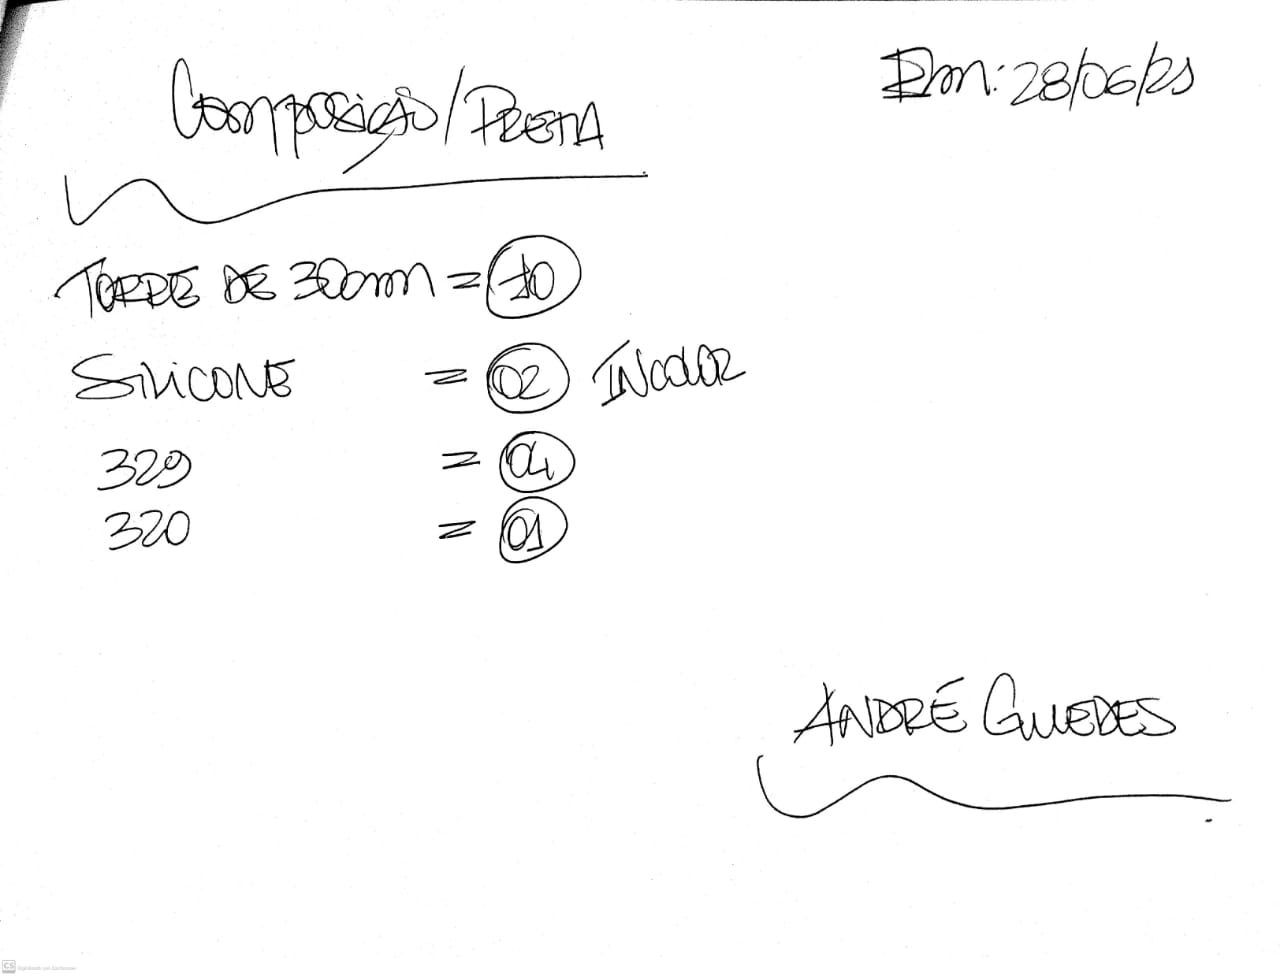 Composição/PRETA
Em: 28/06/21
TORRE DE 300mm = 10
SILICONE = 02 INCOLOR
329 = 04
320 = 01
ANDRÉ GUEDES
CS Digitalizado com CamScanner